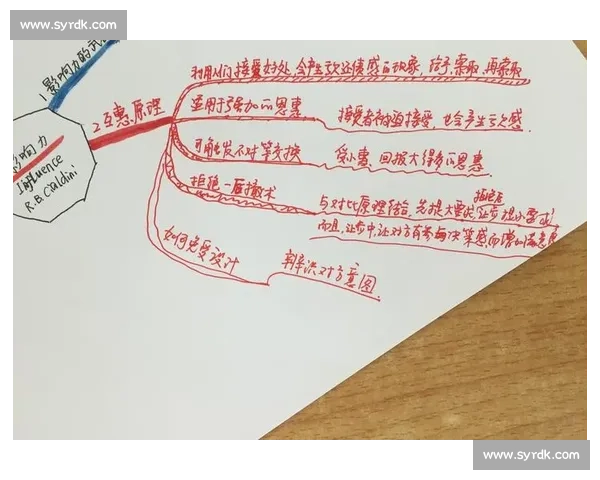 www.syrdk.com
1.影响力的武
2.互惠原理
影响力
Influence
R.B.Cialdini
利用人们接受好处,会产生亏欠债感的现象,给予,索取,再索取
适用于强加的恩惠
接受者被迫接受,也会产生亏欠感.
可触发不对等交换
受小惠,回报大得多的恩惠.
拒绝—后撤术
与对比原理结合,先提大要求,让步提小要求!
拒绝后
而且,让步中,让对方有参与决策感而增加满意度
如何免受设计
辨识对方意图.
www.syrdk.com